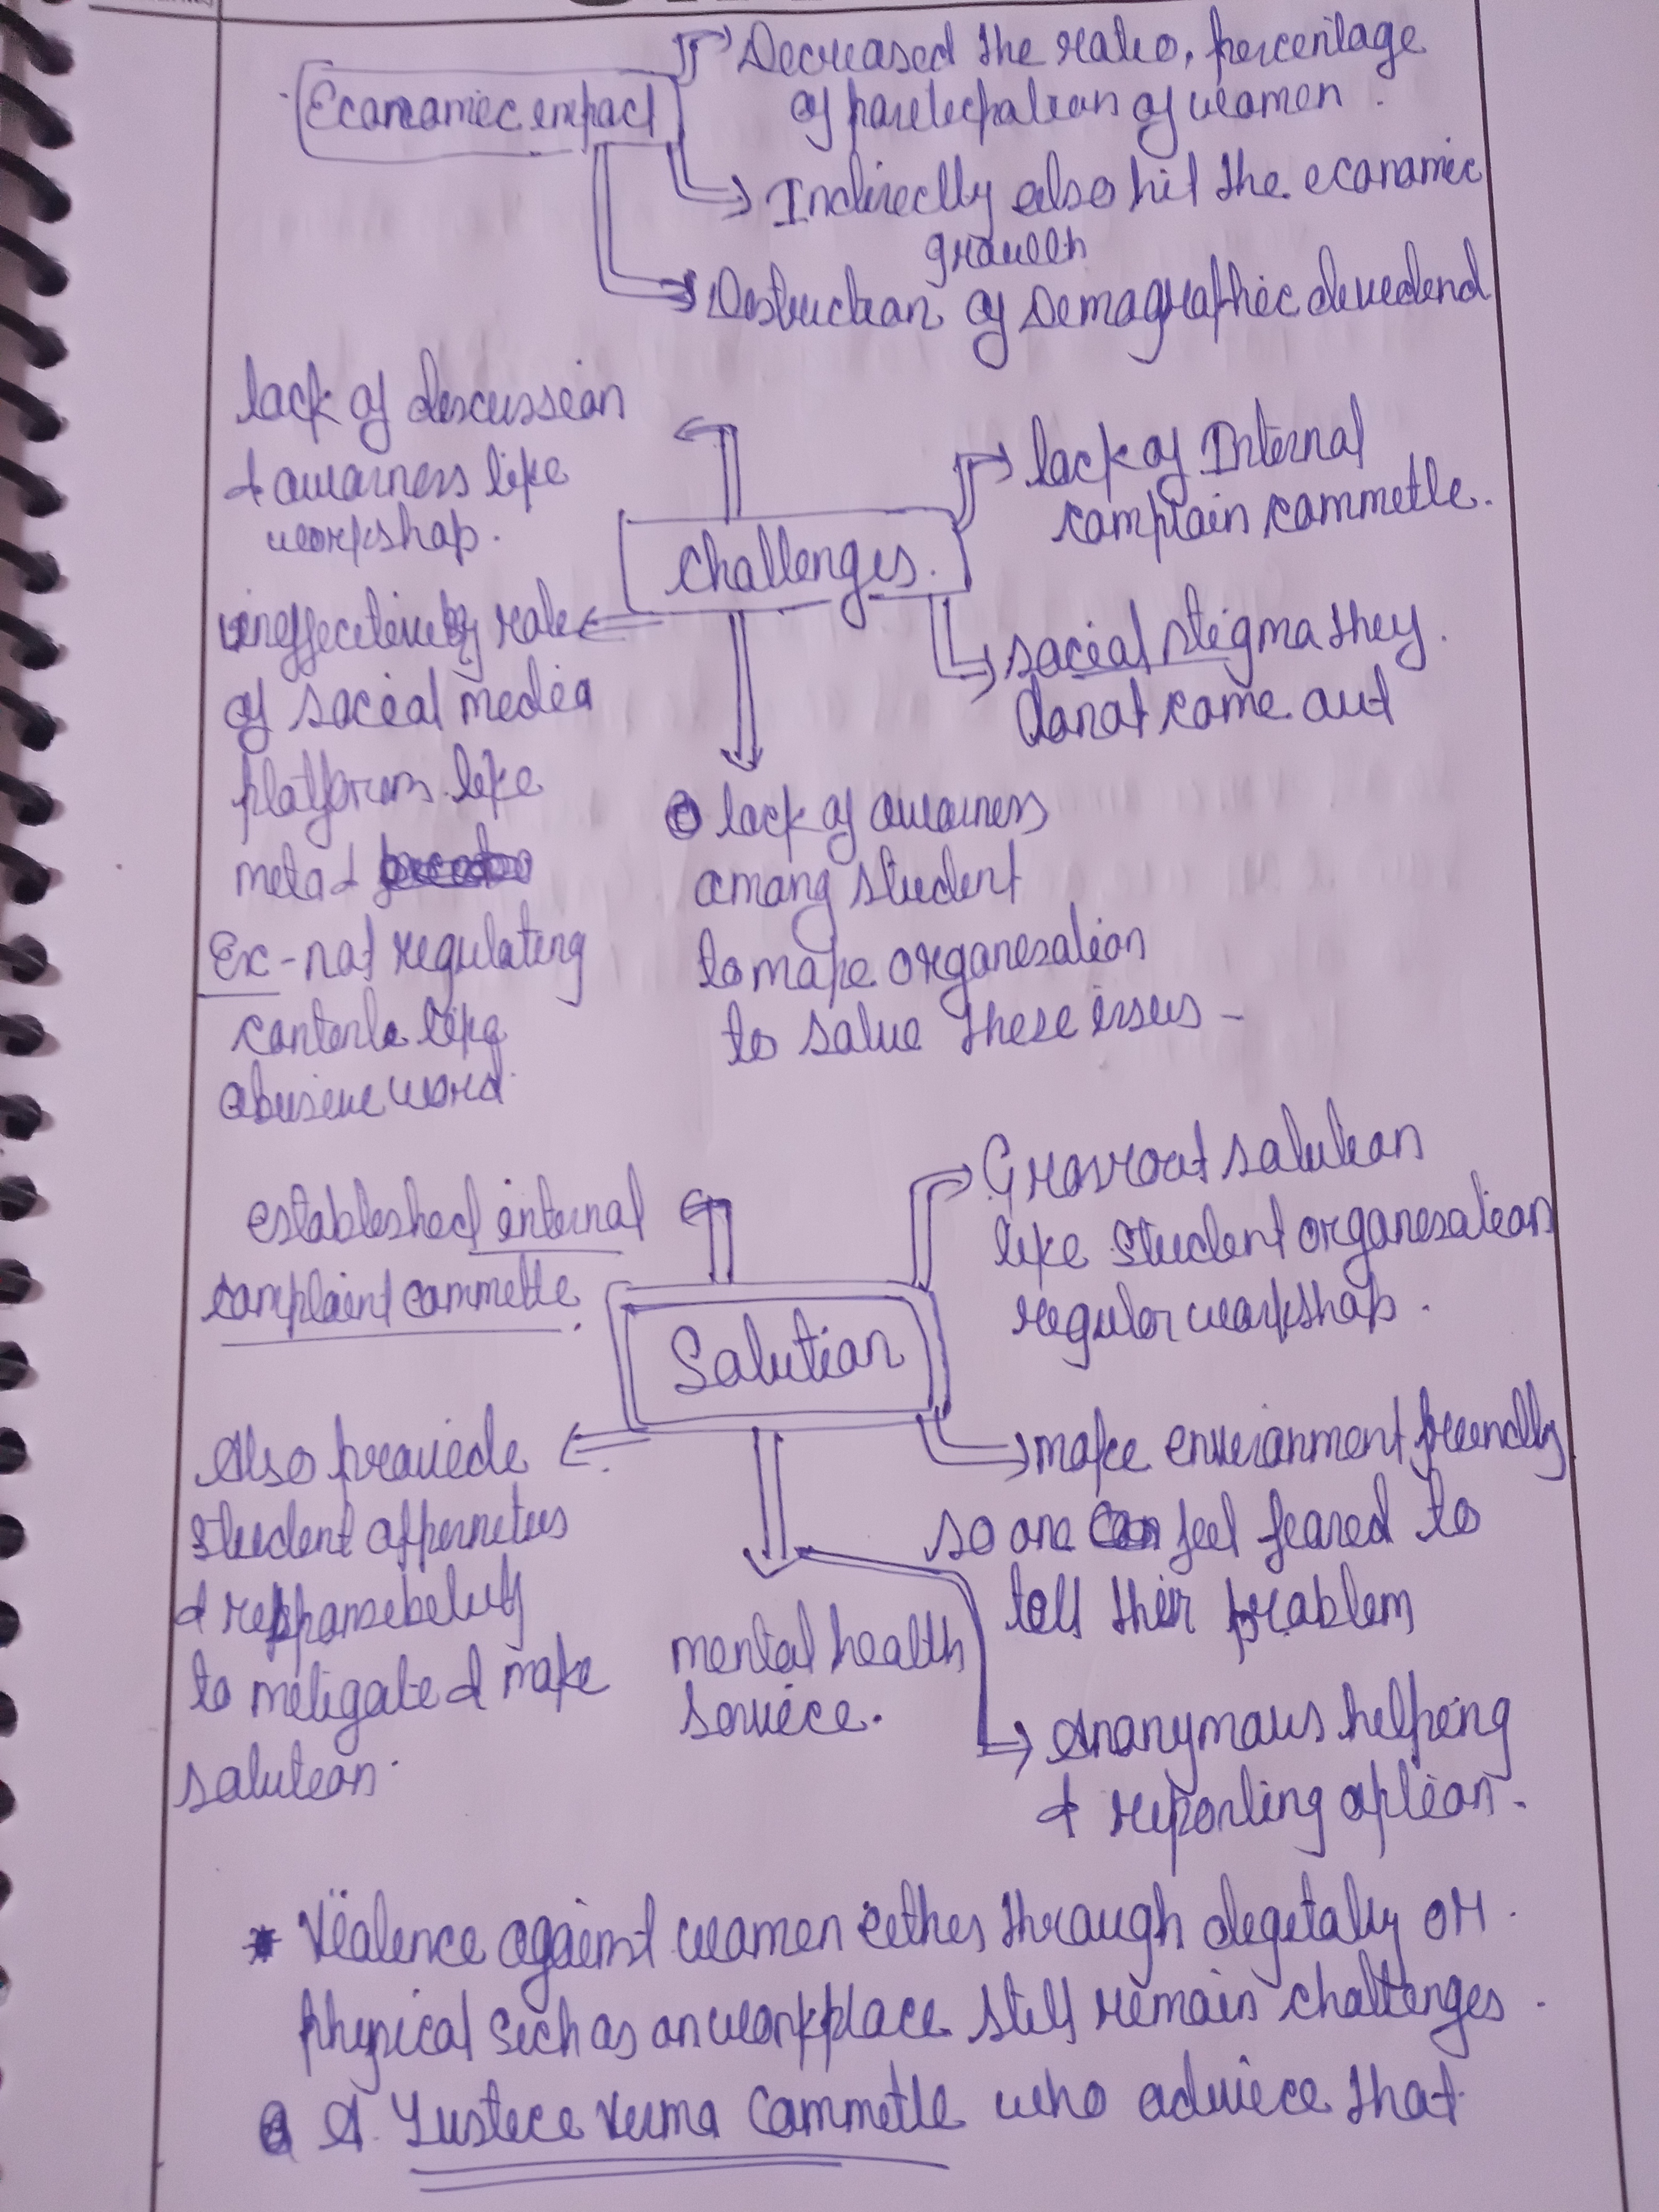 Economic impact
Decreased the ratio, percentage
of participation of women.
Indirectly also hit the economic
growth
Destruction of Demographic dividend
lack of discussion
& awarness like
workshop.
lack of Internal
complain committe.
Challenges.
ineffectively role
of social media
platforms like
meta &
Ex - not regulating
like
abusive word.
social stigma they
donot come out
lack of awarness
among student
to make organisation
to solve these issues -
established internal
complaint committe.
Grassroot solution
like student organisation
regular workshop.
Solution
Also provide
student
& responsibility
to mitigate & make
solution.
make environment friendly
so one can feel feared to
tell their problem
mental health
service.
Anonymous helping
& reporting option.
* Violence against women either through digitally or
physical such as on workplace still remain challenges.
A Justice Verma Committe who advice that